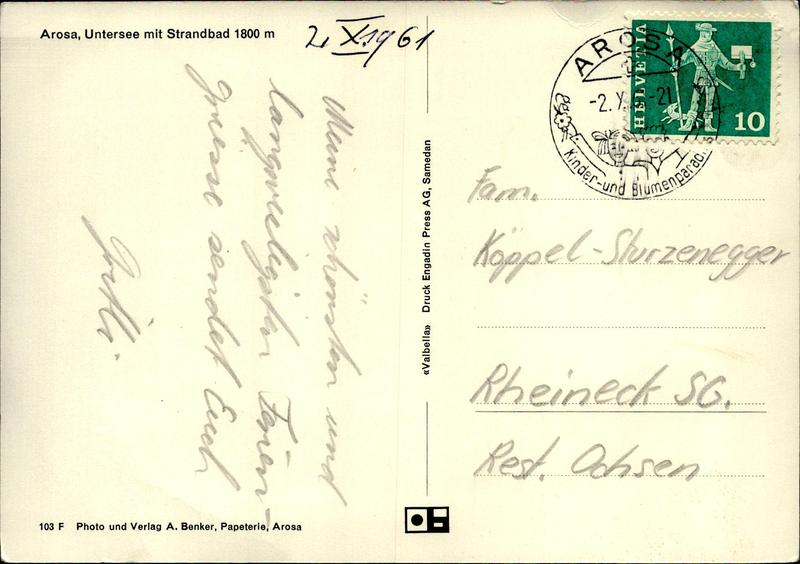 Arosa, Untersee mit Strandbad 1800 m
2. X 1961
Meine schönsten und
langweiligsten Ferien-
grüsse sendet Euch
«Valbella» Druck Engadin Press AG, Samedan
AROSA
-2.X. -21
Kinder- und Blumenparadies
HELVETIA
10
Fam.
Köppel-Sturzenegger
Rheineck SG.
Rest. Ochsen
103 F Photo und Verlag A. Benker, Papeterie, Arosa